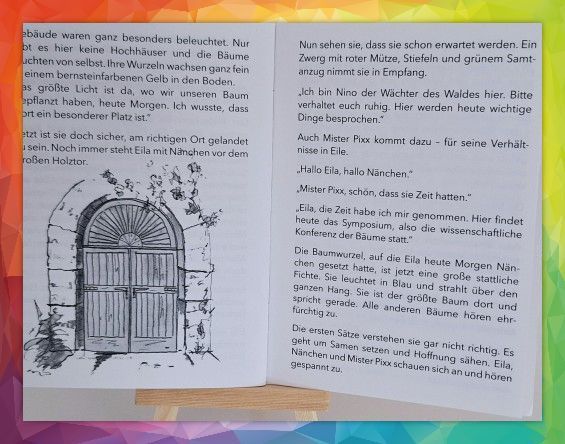 ebäude waren ganz besonders beleuchtet. Nur
bt es hier keine Hochhäuser und die Bäume
uchten von selbst. Ihre Wurzeln wachsen ganz fein
einem bernsteinfarbenen Gelb in den Boden.
as größte Licht ist da, wo wir unseren Baum
epflanzt haben, heute Morgen. Ich wusste, dass
ort ein besonderer Platz ist.“
etzt ist sie doch sicher, am richtigen Ort gelandet
u sein. Noch immer steht Eila mit Nänchen vor dem
roßen Holztor.
Nun sehen sie, dass sie schon erwartet werden. Ein
Zwerg mit roter Mütze, Stiefeln und grünem Samt-
anzug nimmt sie in Empfang.
„Ich bin Nino der Wächter des Waldes hier. Bitte
verhaltet euch ruhig. Hier werden heute wichtige
Dinge besprochen.“
Auch Mister Pixx kommt dazu – für seine Verhält-
nisse in Eile.
„Hallo Eila, hallo Nänchen.“
„Mister Pixx, schön, dass sie Zeit hatten.“
„Eila, die Zeit habe ich mir genommen. Hier findet
heute das Symposium, also die wissenschaftliche
Konferenz der Bäume statt.“
Die Baumwurzel, auf die Eila heute Morgen Nän-
chen gesetzt hatte, ist jetzt eine große stattliche
Fichte. Sie leuchtet in Blau und strahlt über den
ganzen Hang. Sie ist der größte Baum dort und
spricht gerade. Alle anderen Bäume hören ehr-
fürchtig zu.
Die ersten Sätze verstehen sie gar nicht richtig. Es
geht um Samen setzen und Hoffnung sähen. Eila,
Nänchen und Mister Pixx schauen sich an und hören
gespannt zu.